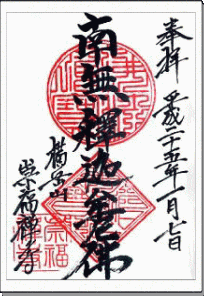 奉拝 平成二十五年一月七日
南無釋迦牟尼佛
横岳山
崇福禪寺
崇福